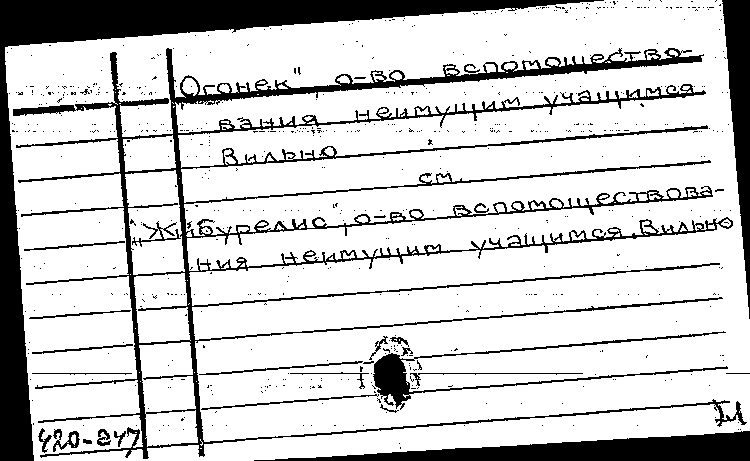 Огонек", о-во вспомощество-
вания неимущим учащимся
Вильно
см.
„Жибурелис", о-во вспомоществова-
ния неимущим учащимся. Вильно
420-247